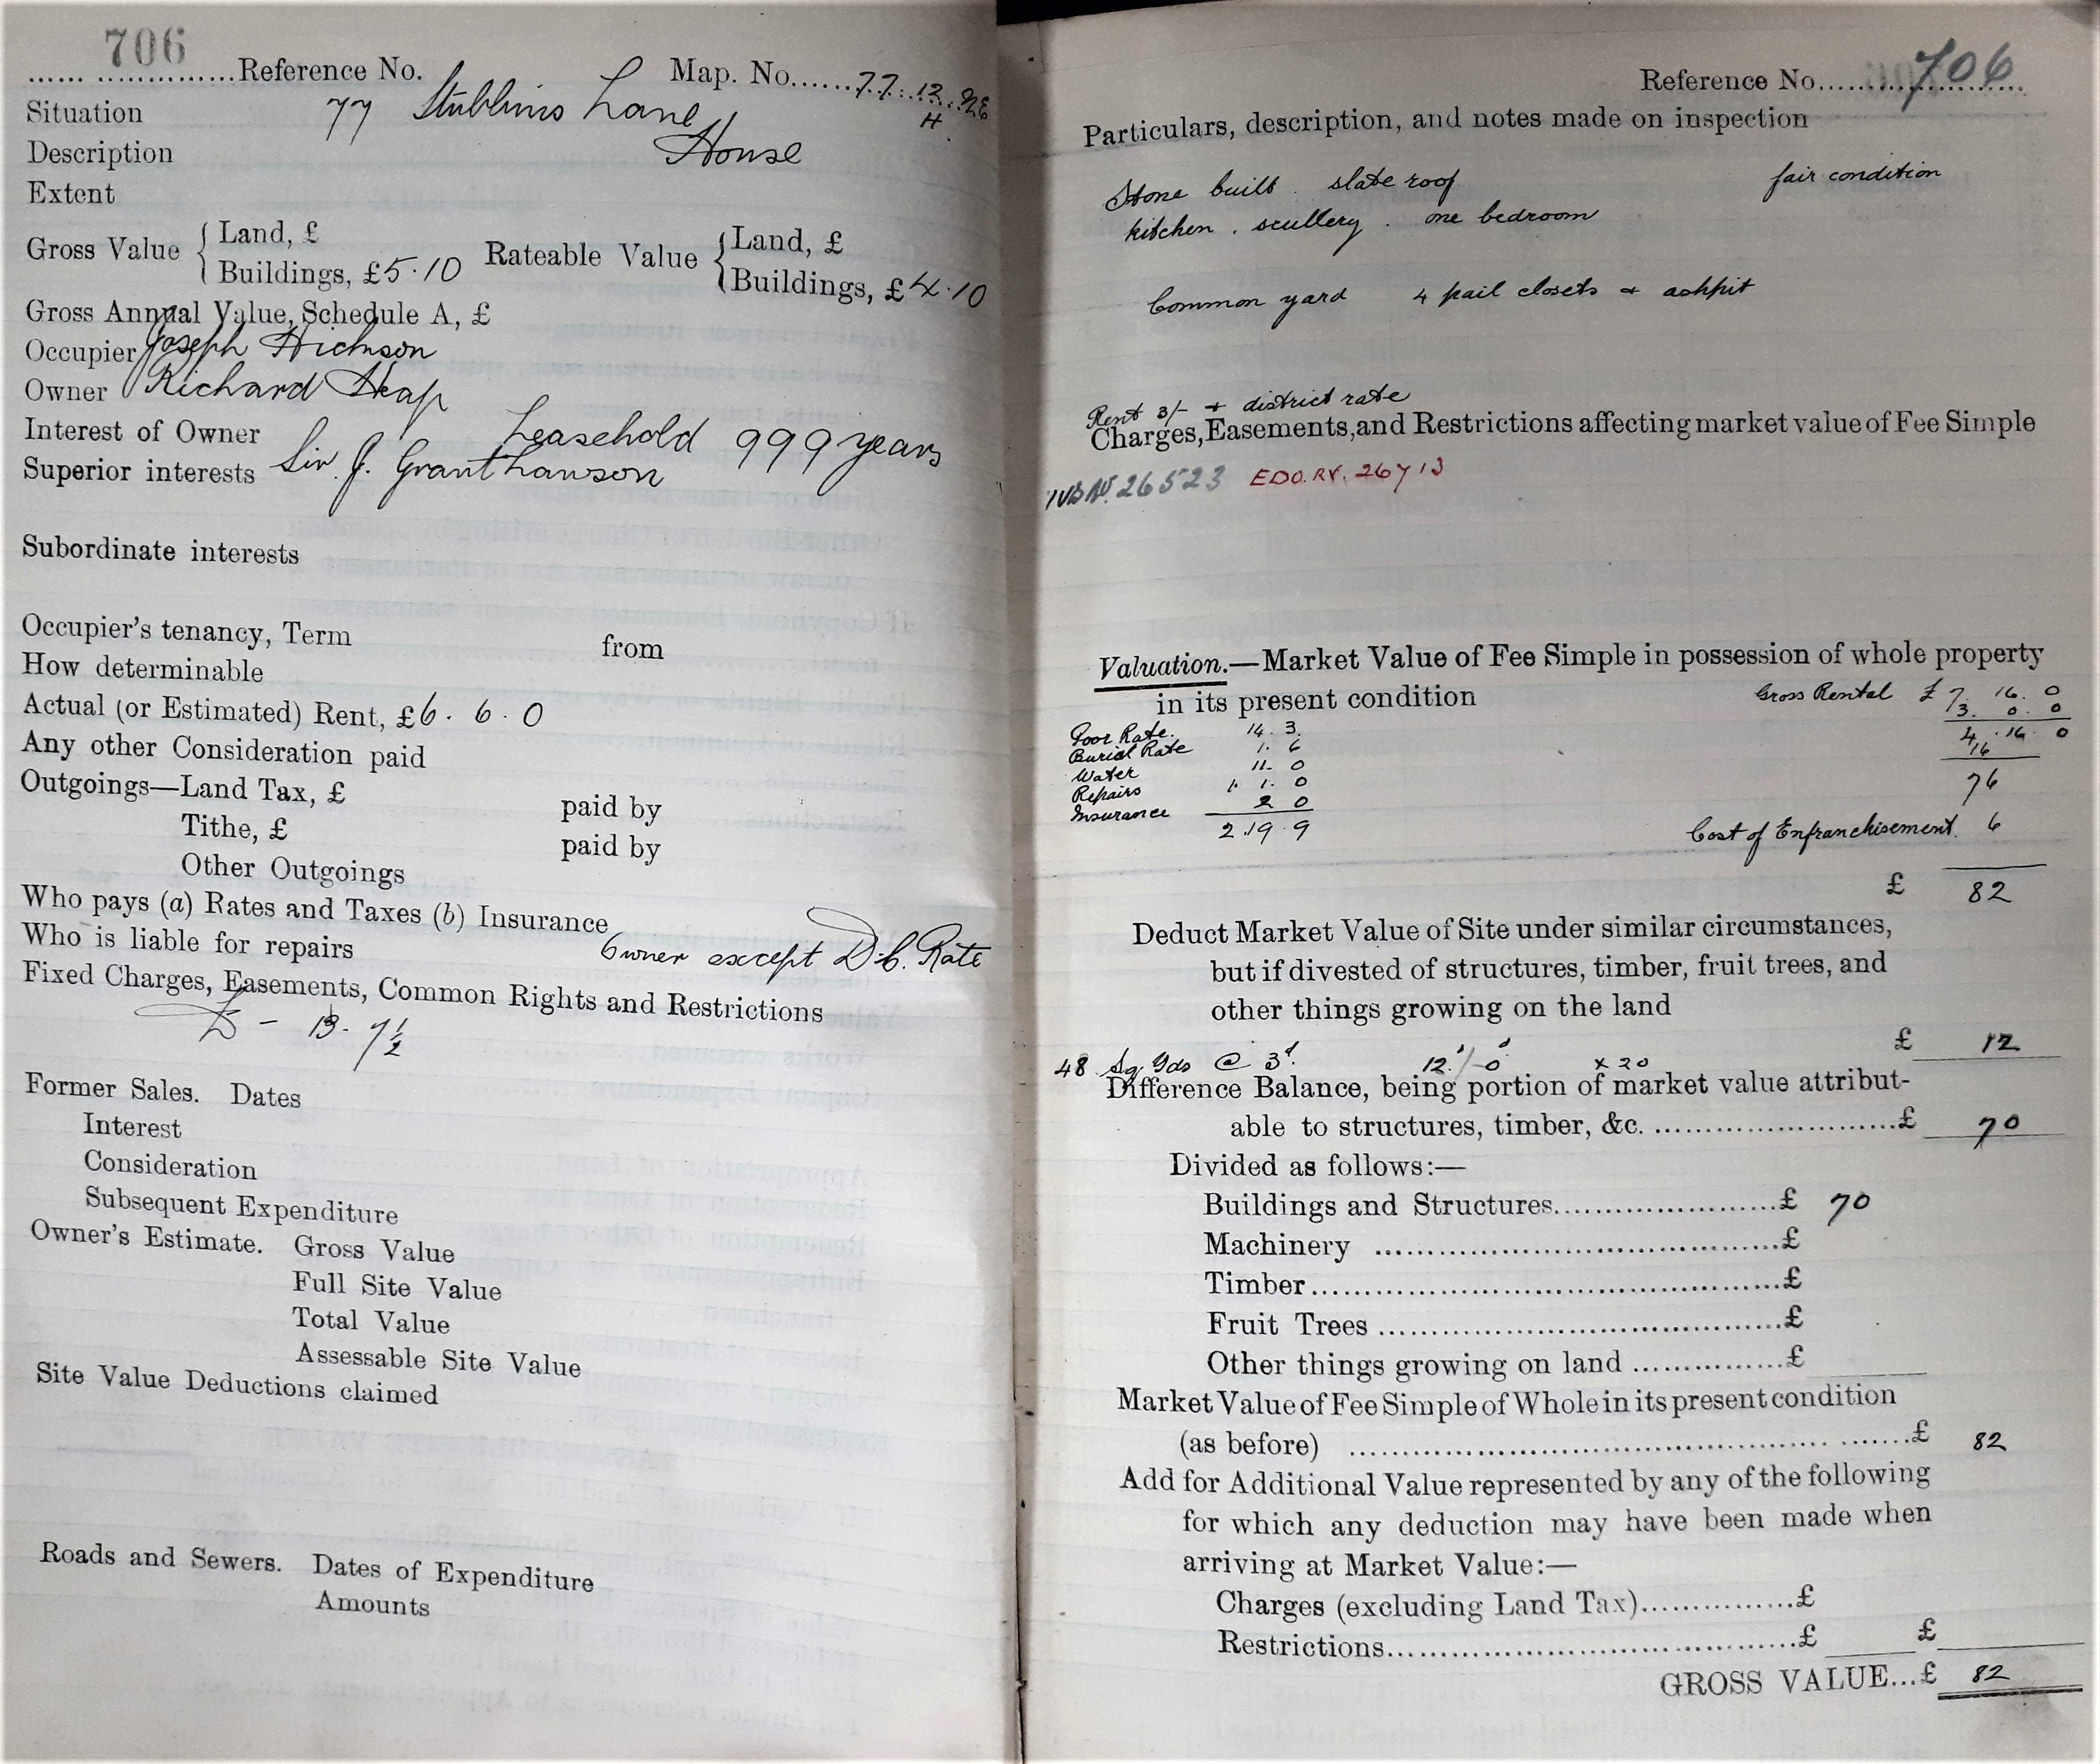 706
...... ..............Reference No. Map. No......77.12.NE
H
Situation 77 Stubbins Lane
Description House
Extent
Gross Value { Land, £
Buildings, £5.10
Rateable Value { Land, £
Buildings, £4.10
Gross Annual Value, Schedule A, £
Occupier Joseph Hickson
Owner Richard Heap
Interest of Owner Leasehold 999 years
Superior interests Sir J. Grant Lawson
Subordinate interests
Occupier's tenancy, Term from
How determinable
Actual (or Estimated) Rent, £6. 6. 0
Any other Consideration paid
Outgoings—Land Tax, £ paid by
Tithe, £ paid by
Other Outgoings
Who pays (a) Rates and Taxes (b) Insurance
Who is liable for repairs Owner except D.C. Rate
Fixed Charges, Easements, Common Rights and Restrictions
£ – 13. 7½
Former Sales. Dates
Interest
Consideration
Subsequent Expenditure
Owner's Estimate. Gross Value
Full Site Value
Total Value
Assessable Site Value
Site Value Deductions claimed
Roads and Sewers. Dates of Expenditure
Amounts
Reference No. 706
Particulars, description, and notes made on inspection
Stone built. slate roof fair condition
kitchen. scullery. one bedroom
Common yard 4 pail closets + ashpit
Rent 3/- + district rate
Charges, Easements, and Restrictions affecting market value of Fee Simple
26523
Valuation.—Market Value of Fee Simple in possession of whole property
in its present condition Gross Rental £ 7. 16. 0
3. 0. 0
Poor Rate. 14. 3. 4. 16. 0
Burial Rate 1. 6 16
Water 11. 0
Repairs 1. 1. 0 76
Insurance 2 0
2.19.9 Cost of Enfranchisement. 6
£ 82
Deduct Market Value of Site under similar circumstances,
but if divested of structures, timber, fruit trees, and
other things growing on the land
£ 12
48 Sq Yds @ 3d 12/-0 x 20
Difference Balance, being portion of market value attribut-
able to structures, timber, &c. .......................£ 70
Divided as follows:—
Buildings and Structures.......................£ 70
Machinery .......................................£
Timber..............................................£
Fruit Trees .......................................£
Other things growing on land ................£
Market Value of Fee Simple of Whole in its present condition
(as before) .......................................................£ 82
Add for Additional Value represented by any of the following
for which any deduction may have been made when
arriving at Market Value:—
Charges (excluding Land Tax)...............£
Restrictions.........................................£ £
GROSS VALUE...£ 82